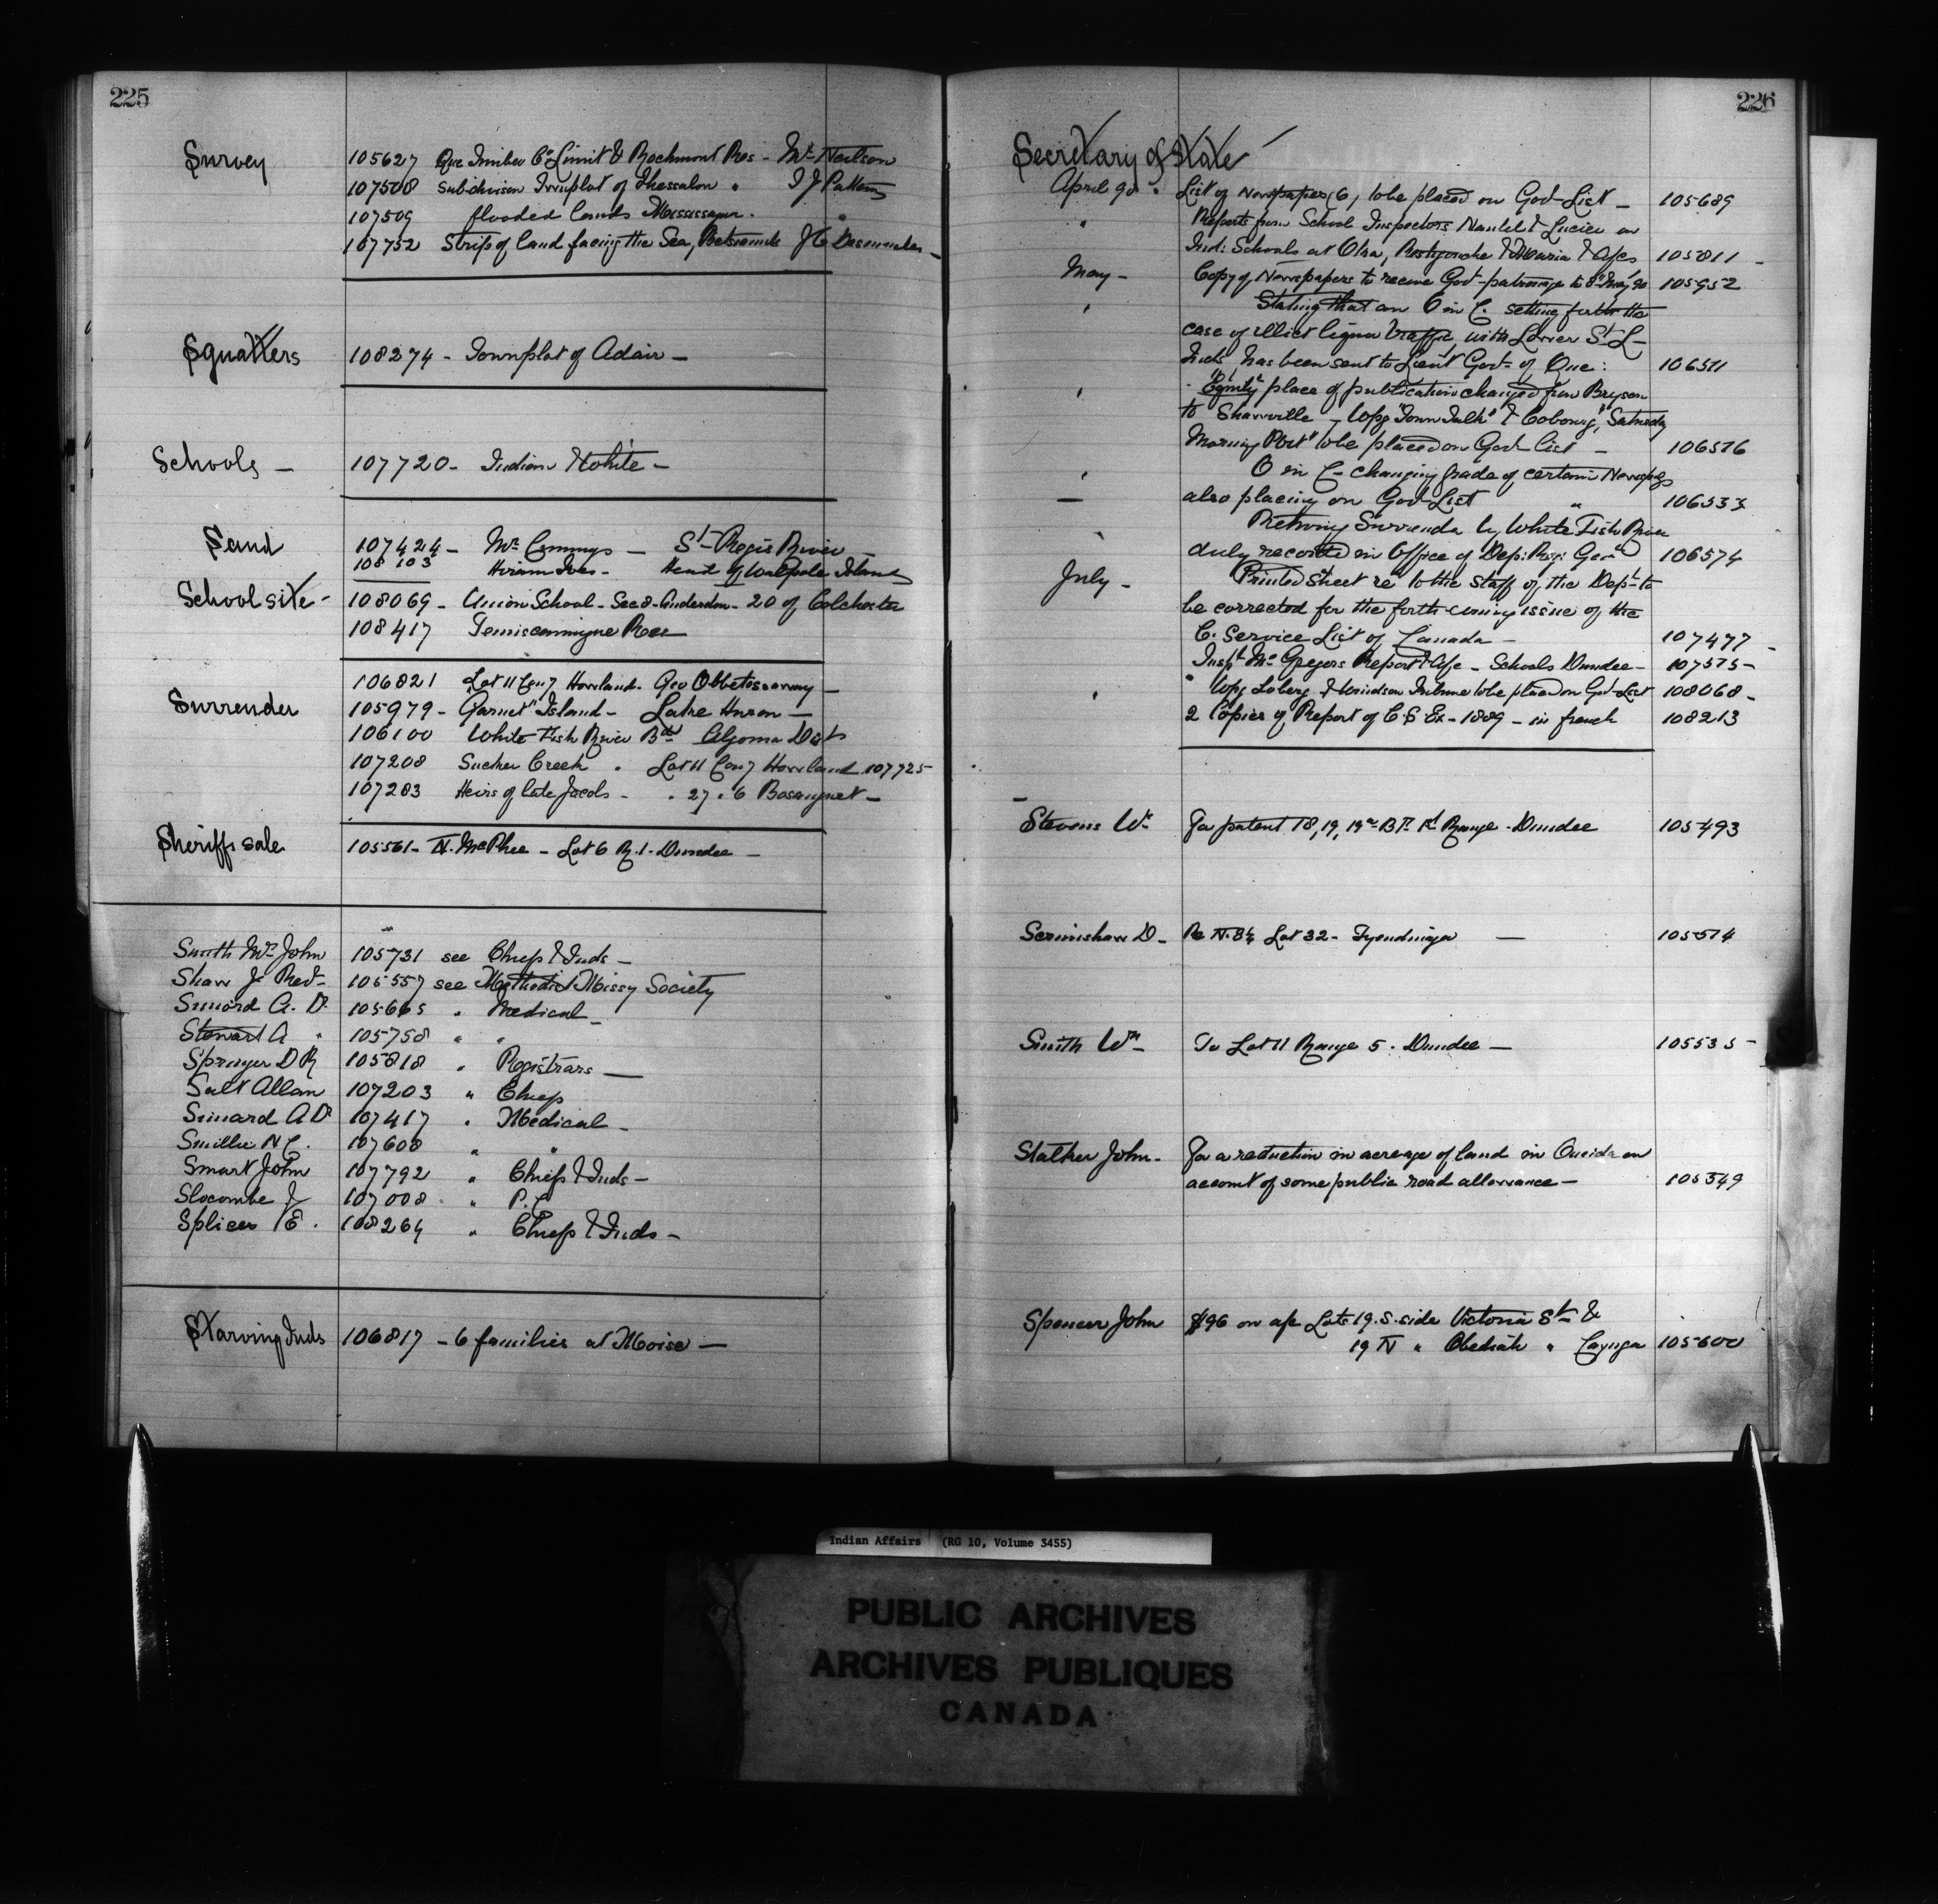 225
Survey
105627 Que Timber Co Limit & Rochmont Res - Mr Neilson
107508 Subdivision Townplot of Thessalon " I J Patten
107509 flooded lands Mississagua.
107752 Strip of land facing the Sea, Betsiamits J C Desmeules
Squatters
108274 - Townplot of Adair -
Schools -
107720 - Indian & White -
Sand
107424 - Mr Cummings - St Regis River -
108103 Hiram Ives - Head of Walpole Island
School site -
108069 - Union School - Sec 8 - Anderdon - 20 of Colchester
108417 Temiscamingue Res
Surrender
106821 Lot 11 Con 7 Howland - Geo Obbetossoway -
105979 - "Garnet" Island - Lake Huron -
106100 White Fish River Bd Algoma Dist
107208 Sucker Creek . Lot 11 Con 7 Howland 107725
107283 Heirs of late Jacobs - . 27 . 6 Bosanquet -
Sheriffs sale
105561 - N. McPhee - Lot 6 R. 1 - Dundee -
Smith Mrs John 105731 see Chiefs & Inds -
Shaw J Revd 105557 see Methodist Missy Society
Simard A. Dr 105665 " Medical -
Stewart A " 105758 " "
Springer D R 105818 " Registrars -
Salt Allan 107203 " Chiefs
Simard A Dr 107417 " Medical -
Smillie N C. 107608 " "
Smart John 107792 " Chiefs & Inds -
Slocombe J 107008 " P. C
Splicer E. 108264 " Chiefs & Inds -
Starving Inds 106817 - 6 families at Moise -
226
Secretary of State
April 90 " List of Newspapers (6) to be placed on Govt List - 105689
" Reports from School Inspectors Nantel & Lucier on
Ind: Schools at Oka, Restigouche & Maria & A/cs 105811 -
May - Copy of Newspapers to receive Govt patronage to 8th May 90 105952
" Stating that an O in C. setting forth the
case of illicit liquor traffic, with Lower St L-
Inds, has been sent to Lieut Govr of Que: 106511
" "Equity" place of publication changed from Bryson
to Shawville - Wpg "Town Talk" & Cobourg, "Saturday
Morning Post" to be placed on Govt List - 106516
" O in C - changing grade of certain Newspaps
- also placing on Govt List " 106533
" Returning Surrender by White Fish River
duly recorded in Office of Dep: Reg: Genl 106574
July - Printed Sheet re to the staff of the Dept to
be corrected for the forth-coming issue of the
C. Service List of Canada - 107477 -
Inspt McGregors Report & A/c - Schools Dundee - 107575 -
" Wpg Loberg & Windsor Tribune to be placed on Govt List 108068 -
2 Copies of Report of C. S. Ex - 1889 - in french 108213
Stevens Wm For patent 18, 19, 19a - B Pt 1st Range - Dundee 105493
Scrimshaw D - Re N. B¼ Lot 32 - Tyendinaga - 105514
Smith Wm To Lot 11 Range 5 . Dundee - 105535 -
Stather John - For a reduction in acreage of land in Oneida on
account of some public road allowance - 105549
Spencer John $96 on a/c Lots 19. S. side Victoria St &
19 N " Obediah " Cayuga 105600
Indian Affairs (RG 10, Volume 3455)
PUBLIC ARCHIVES
ARCHIVES PUBLIQUES
CANADA